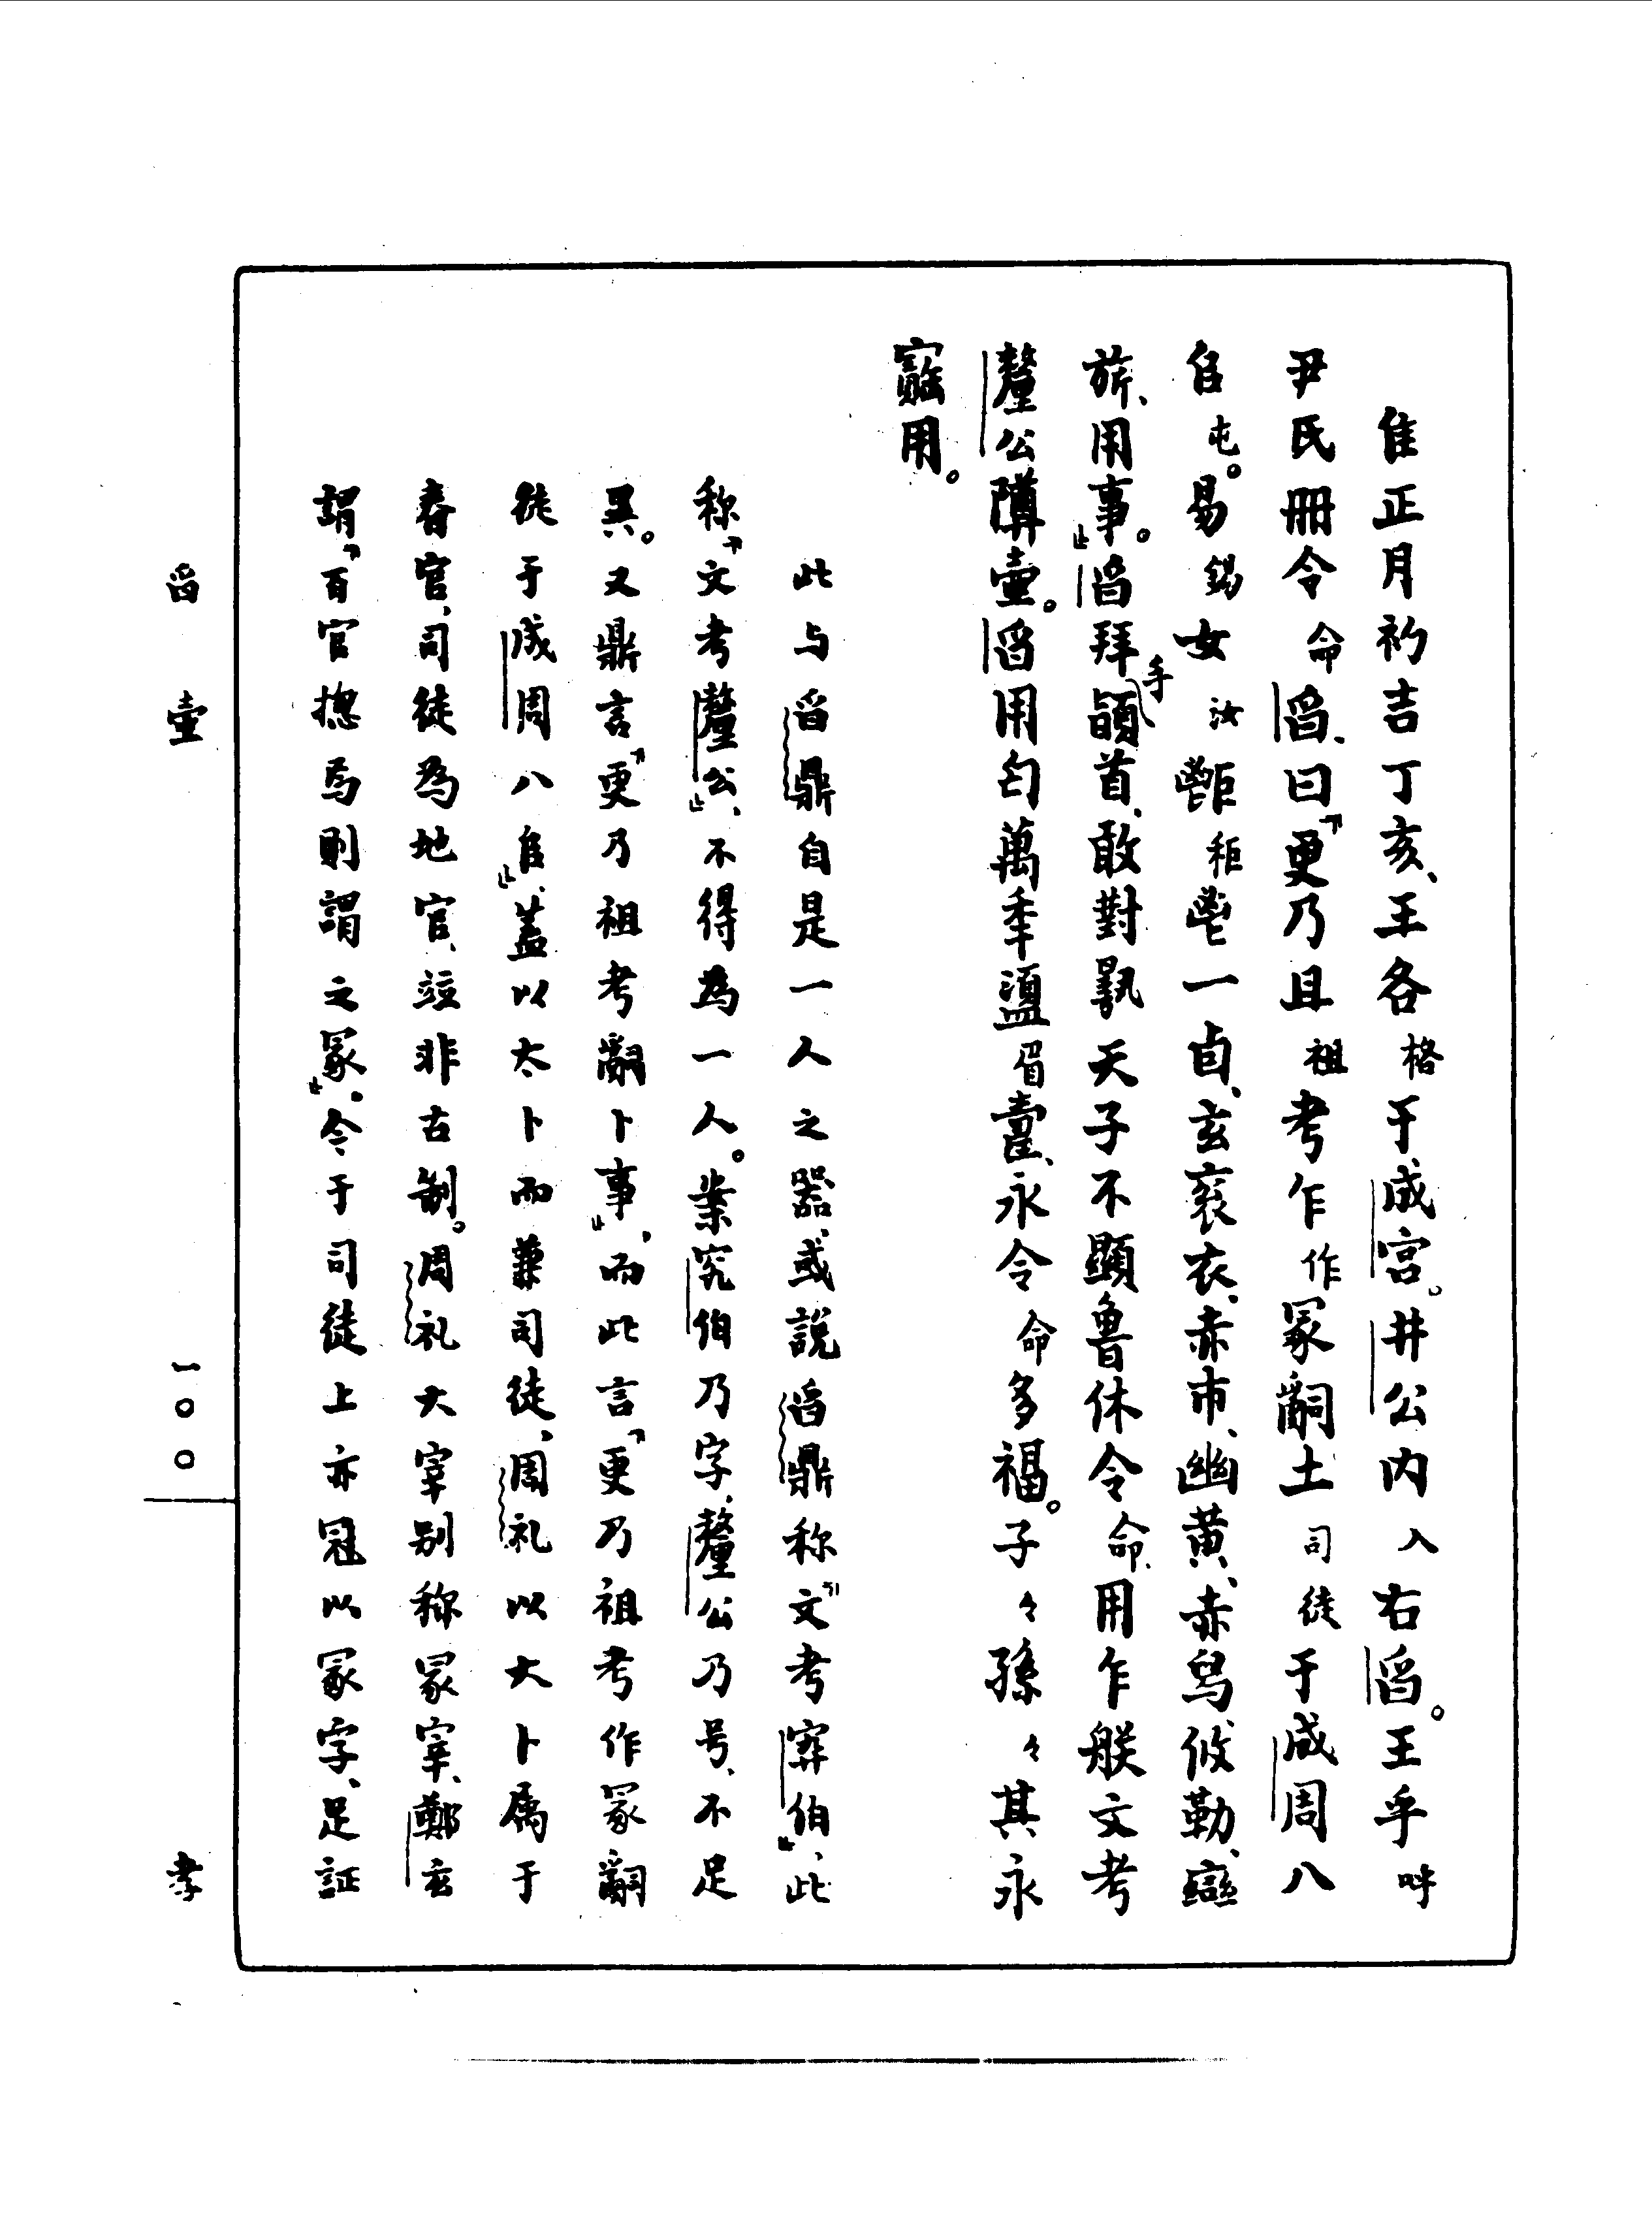 隹正月初吉丁亥、王各格于成宫。井公内入右曶。王乎呼
尹氏冊令命曶、曰「更乃且祖考乍作冢𤔲土司徒于成周八
𠂤屯。易錫女汝秬鬯一卣、玄袞衣、赤巿、幽黄、赤舄、攸勒、䜌
旂、用事」。曶拜手䭫首、敢對揚天子不顯魯休令命、用乍朕文考
釐公䵼壺。曶用匄萬年眉壽、永令命多福。子々孫々其永
寶用。
此与曶鼎自是一人之器、或説曶鼎称「文考穽伯」、此
称「文考釐公」、不得為一人。案究伯乃字、釐公乃号、不足
異。又鼎言「更乃祖考𤔲卜事」、而此言「更乃祖考作冢𤔲
徒于成周八𠂤」、蓋以太卜而兼司徒、周礼以大卜属于
春官、司徒為地官、竝非古制。周礼大宰别称冢宰、鄭玄
謂「百官揔焉則謂之冢」、今于司徒上亦冠以冢字、足証
曶壺
一〇〇
孝